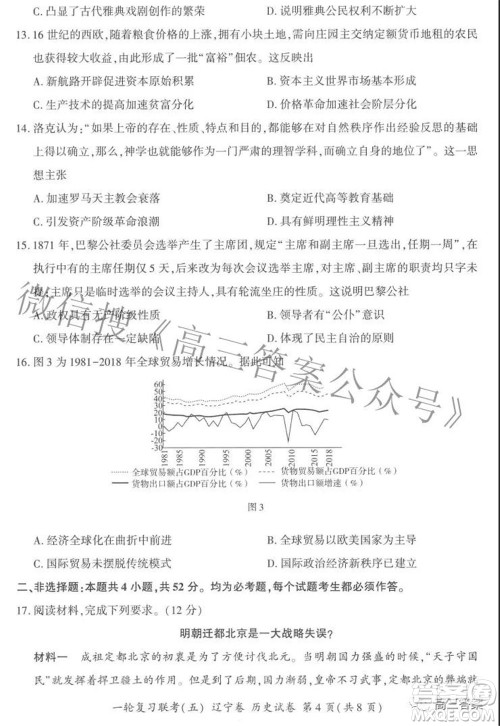 C. 凸显了古代雅典戏剧创作的繁荣 D. 说明雅典公民权利不断扩大
13. 16 世纪的西欧，随着粮食价格的上涨，拥有小块土地，需向庄园主交纳定额货币地租的农民
也获得较大收益，由此形成了一批“富裕”佃农。这反映出
A. 新航路开辟促进资本原始积累 B. 资本主义世界市场基本形成
C. 生产技术的提高加速贫富分化 D. 价格革命加速社会结构变动
14. 洛克认为：“如果上帝的存在、性质、特点和作用能够在对自然秩序作出经验反思的基础上
得以确立，那么，神学就能够作为一门严肃的理智学科，而确立自身的地位了”。这一思
想主张
A. 加速罗马天主教会衰落 B. 奠定近代高等教育基础
C. 引发资产阶级革命浪潮 D. 具有鲜明理性主义色彩
15. 1871 年，巴黎公社委员会选举产生了主席团，规定“主席和副主席一旦选出，任期一周”，在
执行中有的主席任期仅 5 天，后改为每次会议选举主席。对主席、副主席的职责则只字未
提，“主席只是临时选举产生的会议主持人，具有轮流坐庄的性质。”这说明巴黎公社
A. 政权具有无产阶级性质 B. 领导者有“公仆”意识
C. 领导体制存在一定缺陷 D. 体现了民主自治的原则
16. 图 3 为 1981-2018 年全球贸易增长情况。据此可知
60
50
40
30
20
10
0
-10
-20
-30
1981 1985 1990 1995 2000 2005 2010 2015 2018
全球贸易额占GDP百分比（%） 货物贸易额占GDP百分比（%）
货物出口额占GDP百分比（%） 货物出口额增速（%）
图 3
A. 经济全球化在曲折中前进 B. 全球贸易以欧美国家为主导
C. 国际贸易未摆脱传统模式 D. 国际政治经济新秩序已建立
二、非选择题：本题共 4 小题，共 52 分。均为必考题，每个试题考生都必须作答。
17. 阅读材料，完成下列要求。（12 分）
明朝迁都北京是一大战略失误？
材料一 成祖定都北京的初衷是为了方便讨伐北元。当明朝前期国力强盛的时候，“天子守
国民”的战略的确起到了很好的捍卫疆土的作用。但是，皇帝不可能世代英武，国力也不可能
一轮复习联考（五） 辽宁卷 历史试卷 第 4 页（共 8 页）
微信搜《高三答案公众号》
高三答案